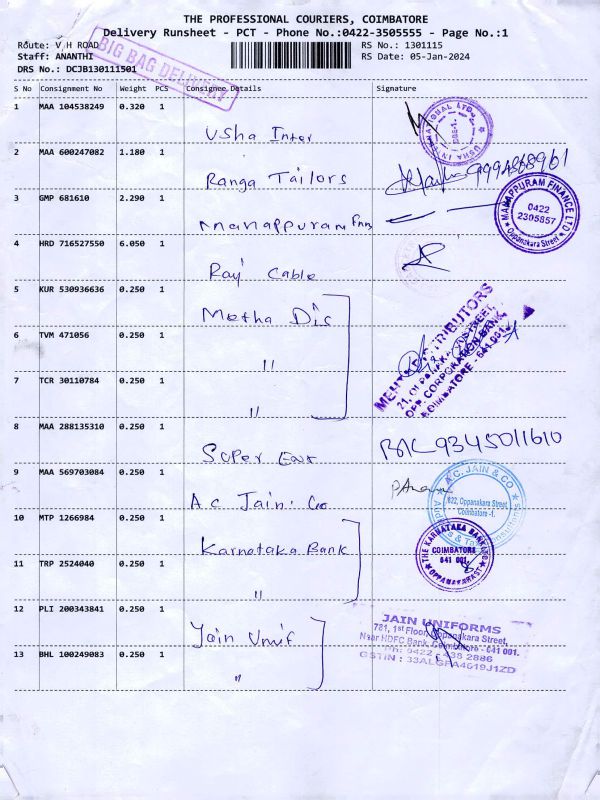 THE PROFESSIONAL COURIERS, COIMBATORE
Delivery Runsheet - PCT - Phone No.:0422-3505555 - Page No.:1
Route: V H ROAD
RS No.: 1301115
Staff: ANANTHI
RS Date: 05-Jan-2024
DRS No.: DCJB130111501
BIG BAG DELIVERY
S No Consignment No Weight PCS Consignee Details Signature
1 MAA 104538249 0.320 1
Usha Inter
USHA INTERNATIONAL LTD
2 MAA 600247082 1.180 1
Ranga Tailors
9994868961
3 GMP 681610 2.290 1
Manappuram Fnn
MANAPPURAM FINANCE LTD
0422
2305857
Oppanakara Street
4 HRD 716527550 6.050 1
Raj Cable
5 KUR 530936636 0.250 1
Metha Dis
6 TVM 471056 0.250 1
"
7 TCR 30110784 0.250 1
"
MEHTA DISTRIBUTORS
OPP. CORPORATION BANK,
COIMBATORE - 641 001.
8 MAA 288135310 0.250 1
Super
9345011610
9 MAA 569703084 0.250 1
A C Jain. Co
A C. JAIN & CO
622, Oppanakara Street
Coimbatore -1.
10 MTP 1266984 0.250 1
Karnataka Bank
11 TRP 2524040 0.250 1
"
THE KARNATAKA BANK LTD
COIMBATORE
641 001
OPPANAKARA ST
12 PLI 200343841 0.250 1
Jain Unif
13 BHL 100249083 0.250 1
"
JAIN UNIFORMS
781, 1st Floor, Oppanakara Street,
Near HDFC Bank, Coimbatore - 641 001.
Ph: 0422 - 438 2886